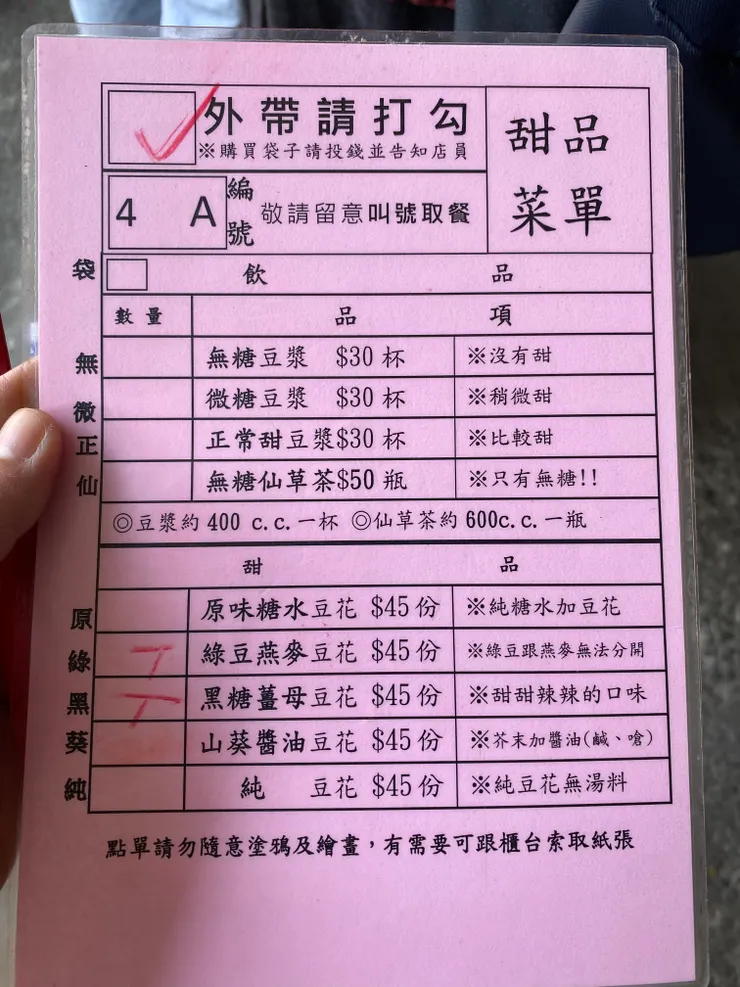 外帶請打勾
※購買袋子請投錢並告知店員
甜品
菜單
4 A 編號 敬請留意叫號取餐
袋 飲品
數量 品項
無 無糖豆漿 $30 杯 ※沒有甜
微 微糖豆漿 $30 杯 ※稍微甜
正 正常甜豆漿$30 杯 ※比較甜
仙 無糖仙草茶$50 瓶 ※只有無糖!!
◎豆漿約 400 c.c.一杯 ◎仙草茶約 600c.c.一瓶
甜品
原 原味糖水豆花 $45 份 ※純糖水加豆花
綠 綠豆燕麥豆花 $45 份 ※綠豆跟燕麥無法分開
黑 黑糖薑母豆花 $45 份 ※甜甜辣辣的口味
葵 山葵醬油豆花 $45 份 ※芥末加醬油(鹹、嗆)
純 純 豆花 $45 份 ※純豆花無湯料
點單請勿隨意塗鴉及繪畫，有需要可跟櫃台索取紙張